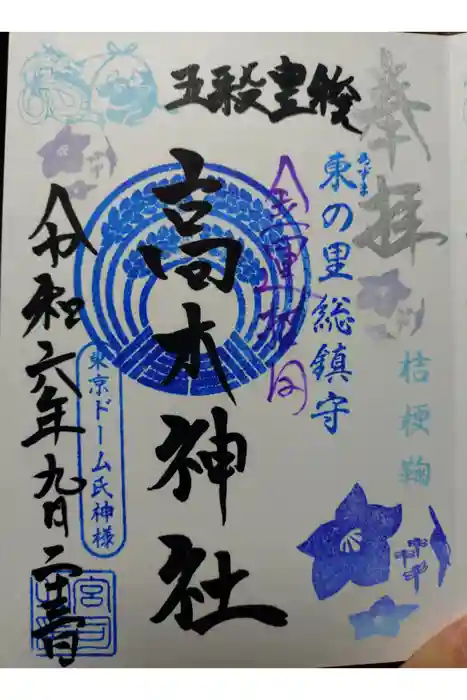 奉拝
桔梗鞠
五穀豊穣
東の里総鎮守
あずま
金運招向
高木神社
東京ドーム氏神様
令和六年九月二十三日
宮司